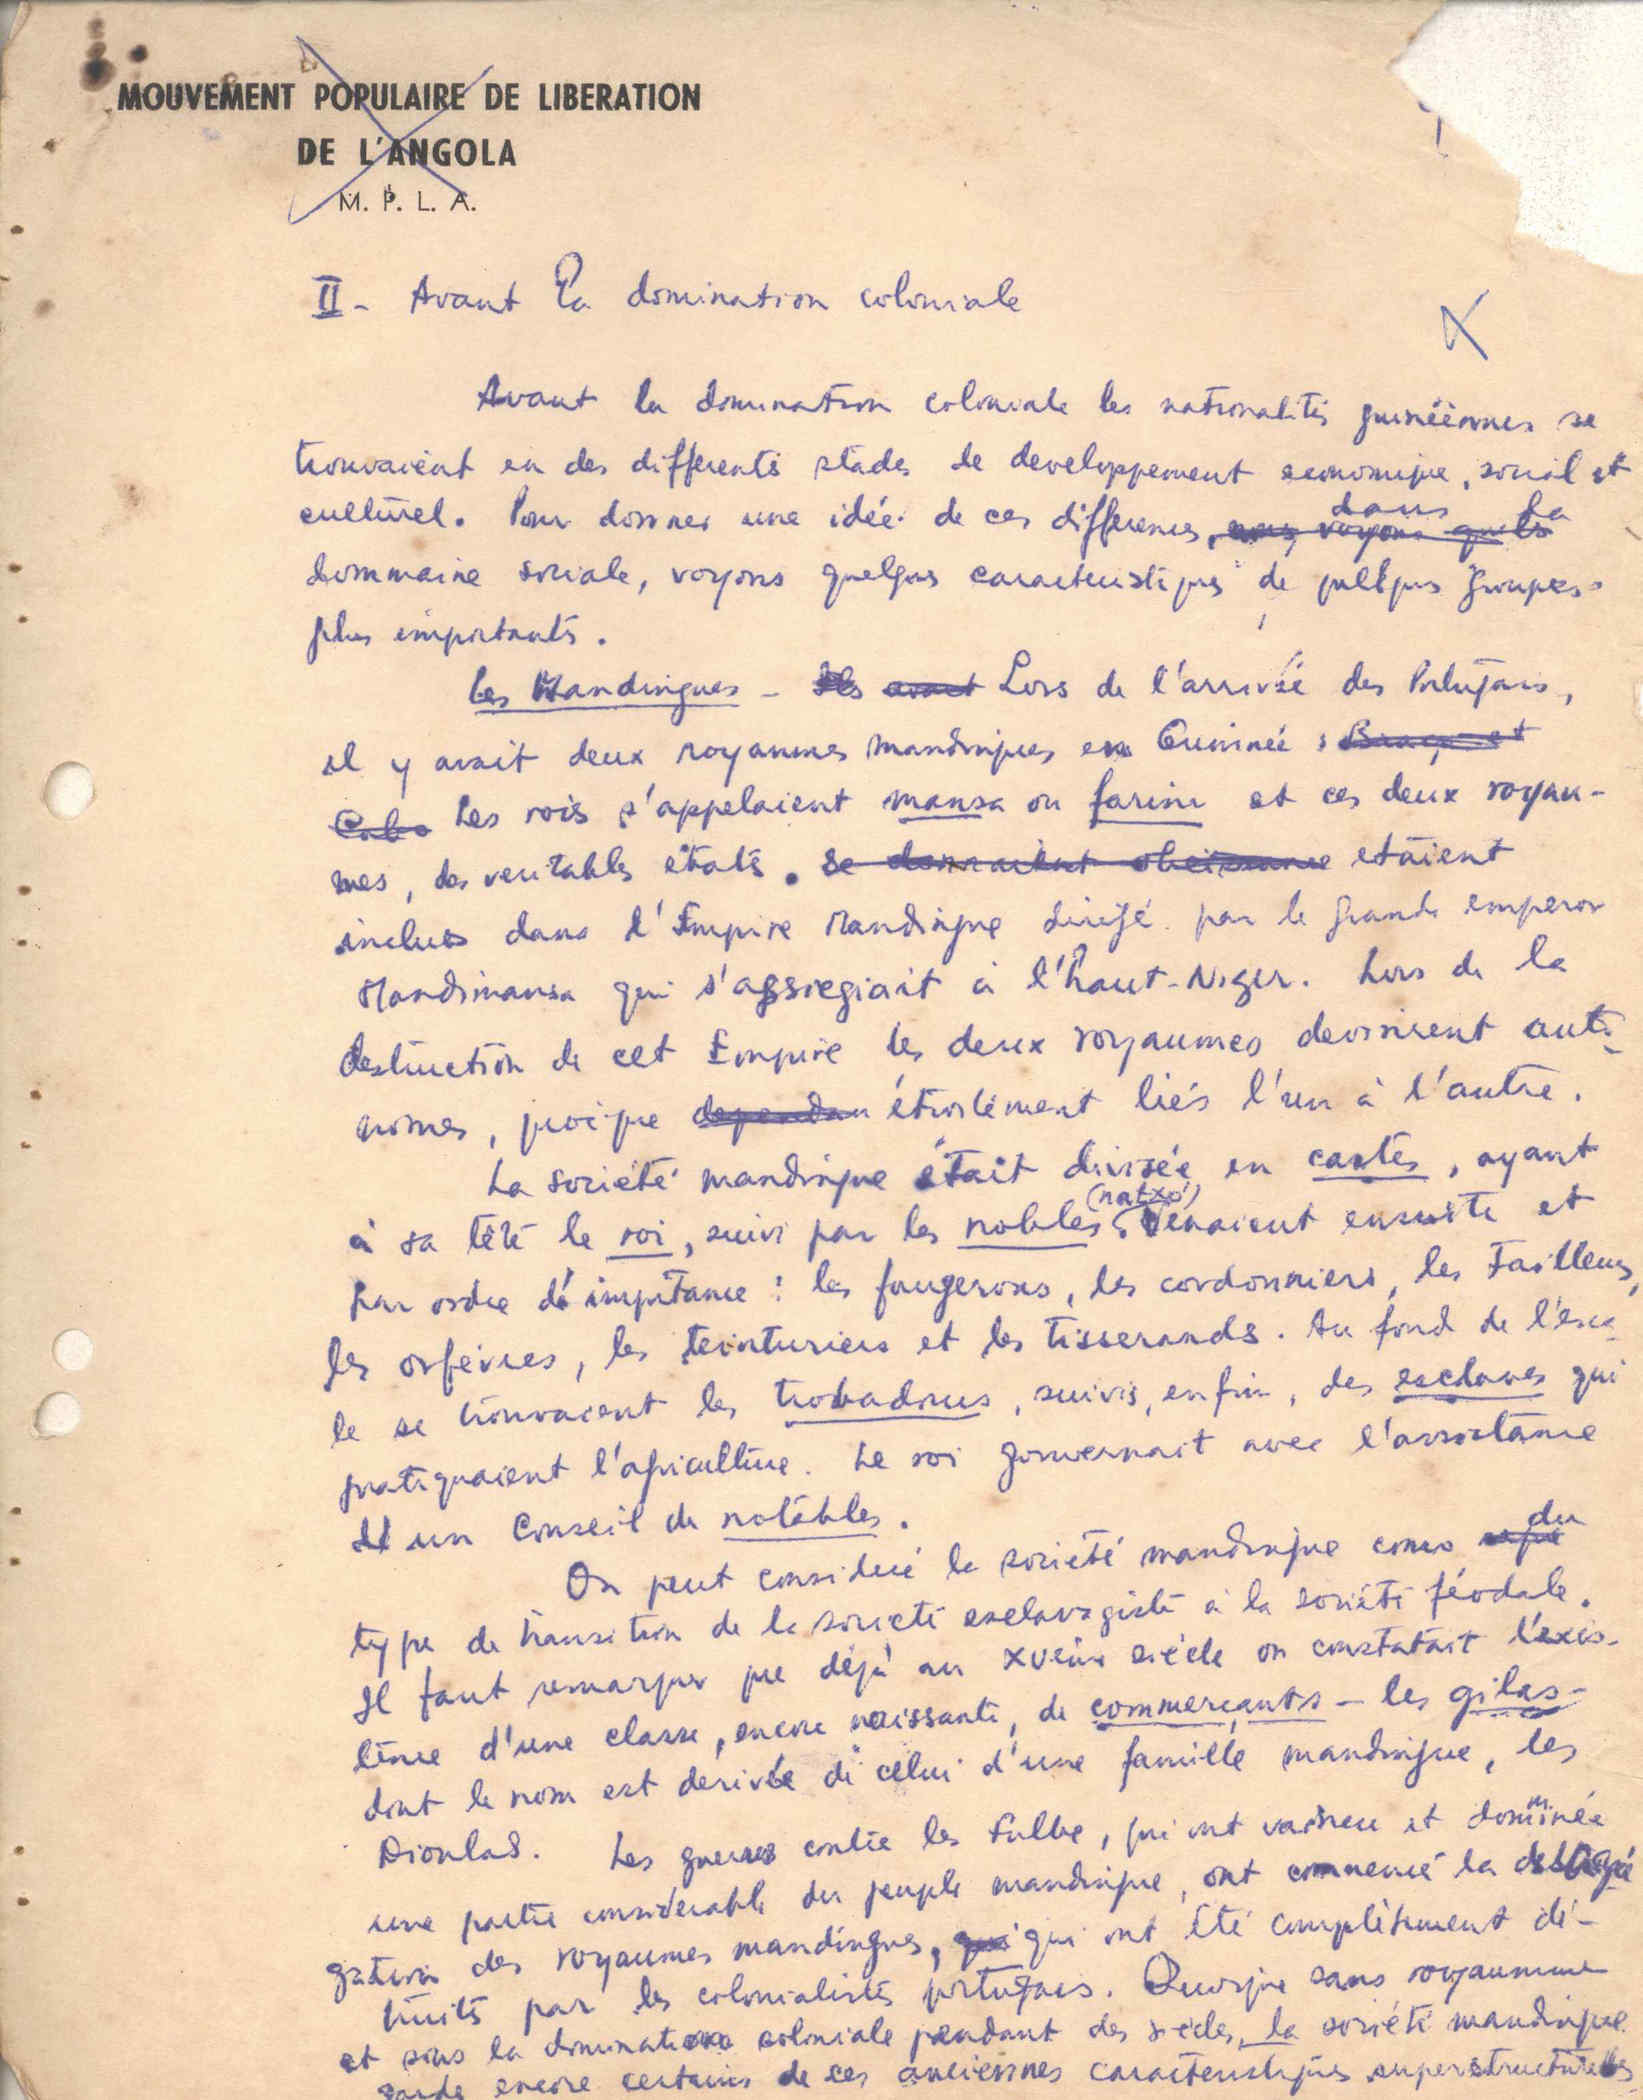 MOUVEMENT POPULAIRE DE LIBERATION
DE L'ANGOLA
M. P. L. A.
II - Avant la domination coloniale
Avant la domination coloniale les nationalités guinéènnes se
trouvaient en des differents stades de developpement economique, social et
culturel. Pour donner une idée de ces differences, dans la
dommaine sociale, voyons quelques caracteristiques de quelques groupes
plus importants.
Les Mandingues - Ils avant Lors de l'arrivée des Portugais,
il y avait deux royaumes mandingues en Guinnée :
Cabo Les rois s'appelaient mansa ou farim et ces deux royau-
mes, des veritables états. se donnaient obeissance etaient
inclues dans l'Empire Mandingue dirigé par le grande emperor
Mandimansa qui s'assiegiait à l'haut-Niger. Lors de la
destruction de cet Empire les deux royaumes devinrent auto-
nomes, quoique dependan étroitement liés l'un à l'autre.
La société mandingue était divisée en castes, ayant
à sa tête le roi, suivi par les nobles (natxo). Venaient ensuite et
par ordre d'importance : les fougerons, les cordonniers, les tailleurs,
les orfèvres, les teinturiers et les tisserands. Au fond de l'éche
le se trouvaient les trobadours, suivis, enfin, des esclaves qui
pratiquaient l'agriculture. Le roi gouvernait avec l'assistance
d'un Conseil de notables.
On peut consideré la société mandingue como du
type de transition de la societé esclavagiste à la société féodale.
Il faut remarquer que déjà au XVème siécle on constatait l'exis-
tence d'une classe, encore naissante, de commerçants - les gilas -
dont le nom est derivée de celui d'une famille mandingue, les
Dioulas. Les guerres contre les Fulbe, qui ont vaincu et dominée
une partie considerable du peuple mandingue, ont commencé la
gation des royaumes mandingues, qui qui ont été complètement dé-
truits par les colonialistes portugais. Quoique sans royaumme
et sous la domination coloniale pendant des siècles, la société mandingue
garde encore certains de ces anciennes caracteristiques superstructurelles